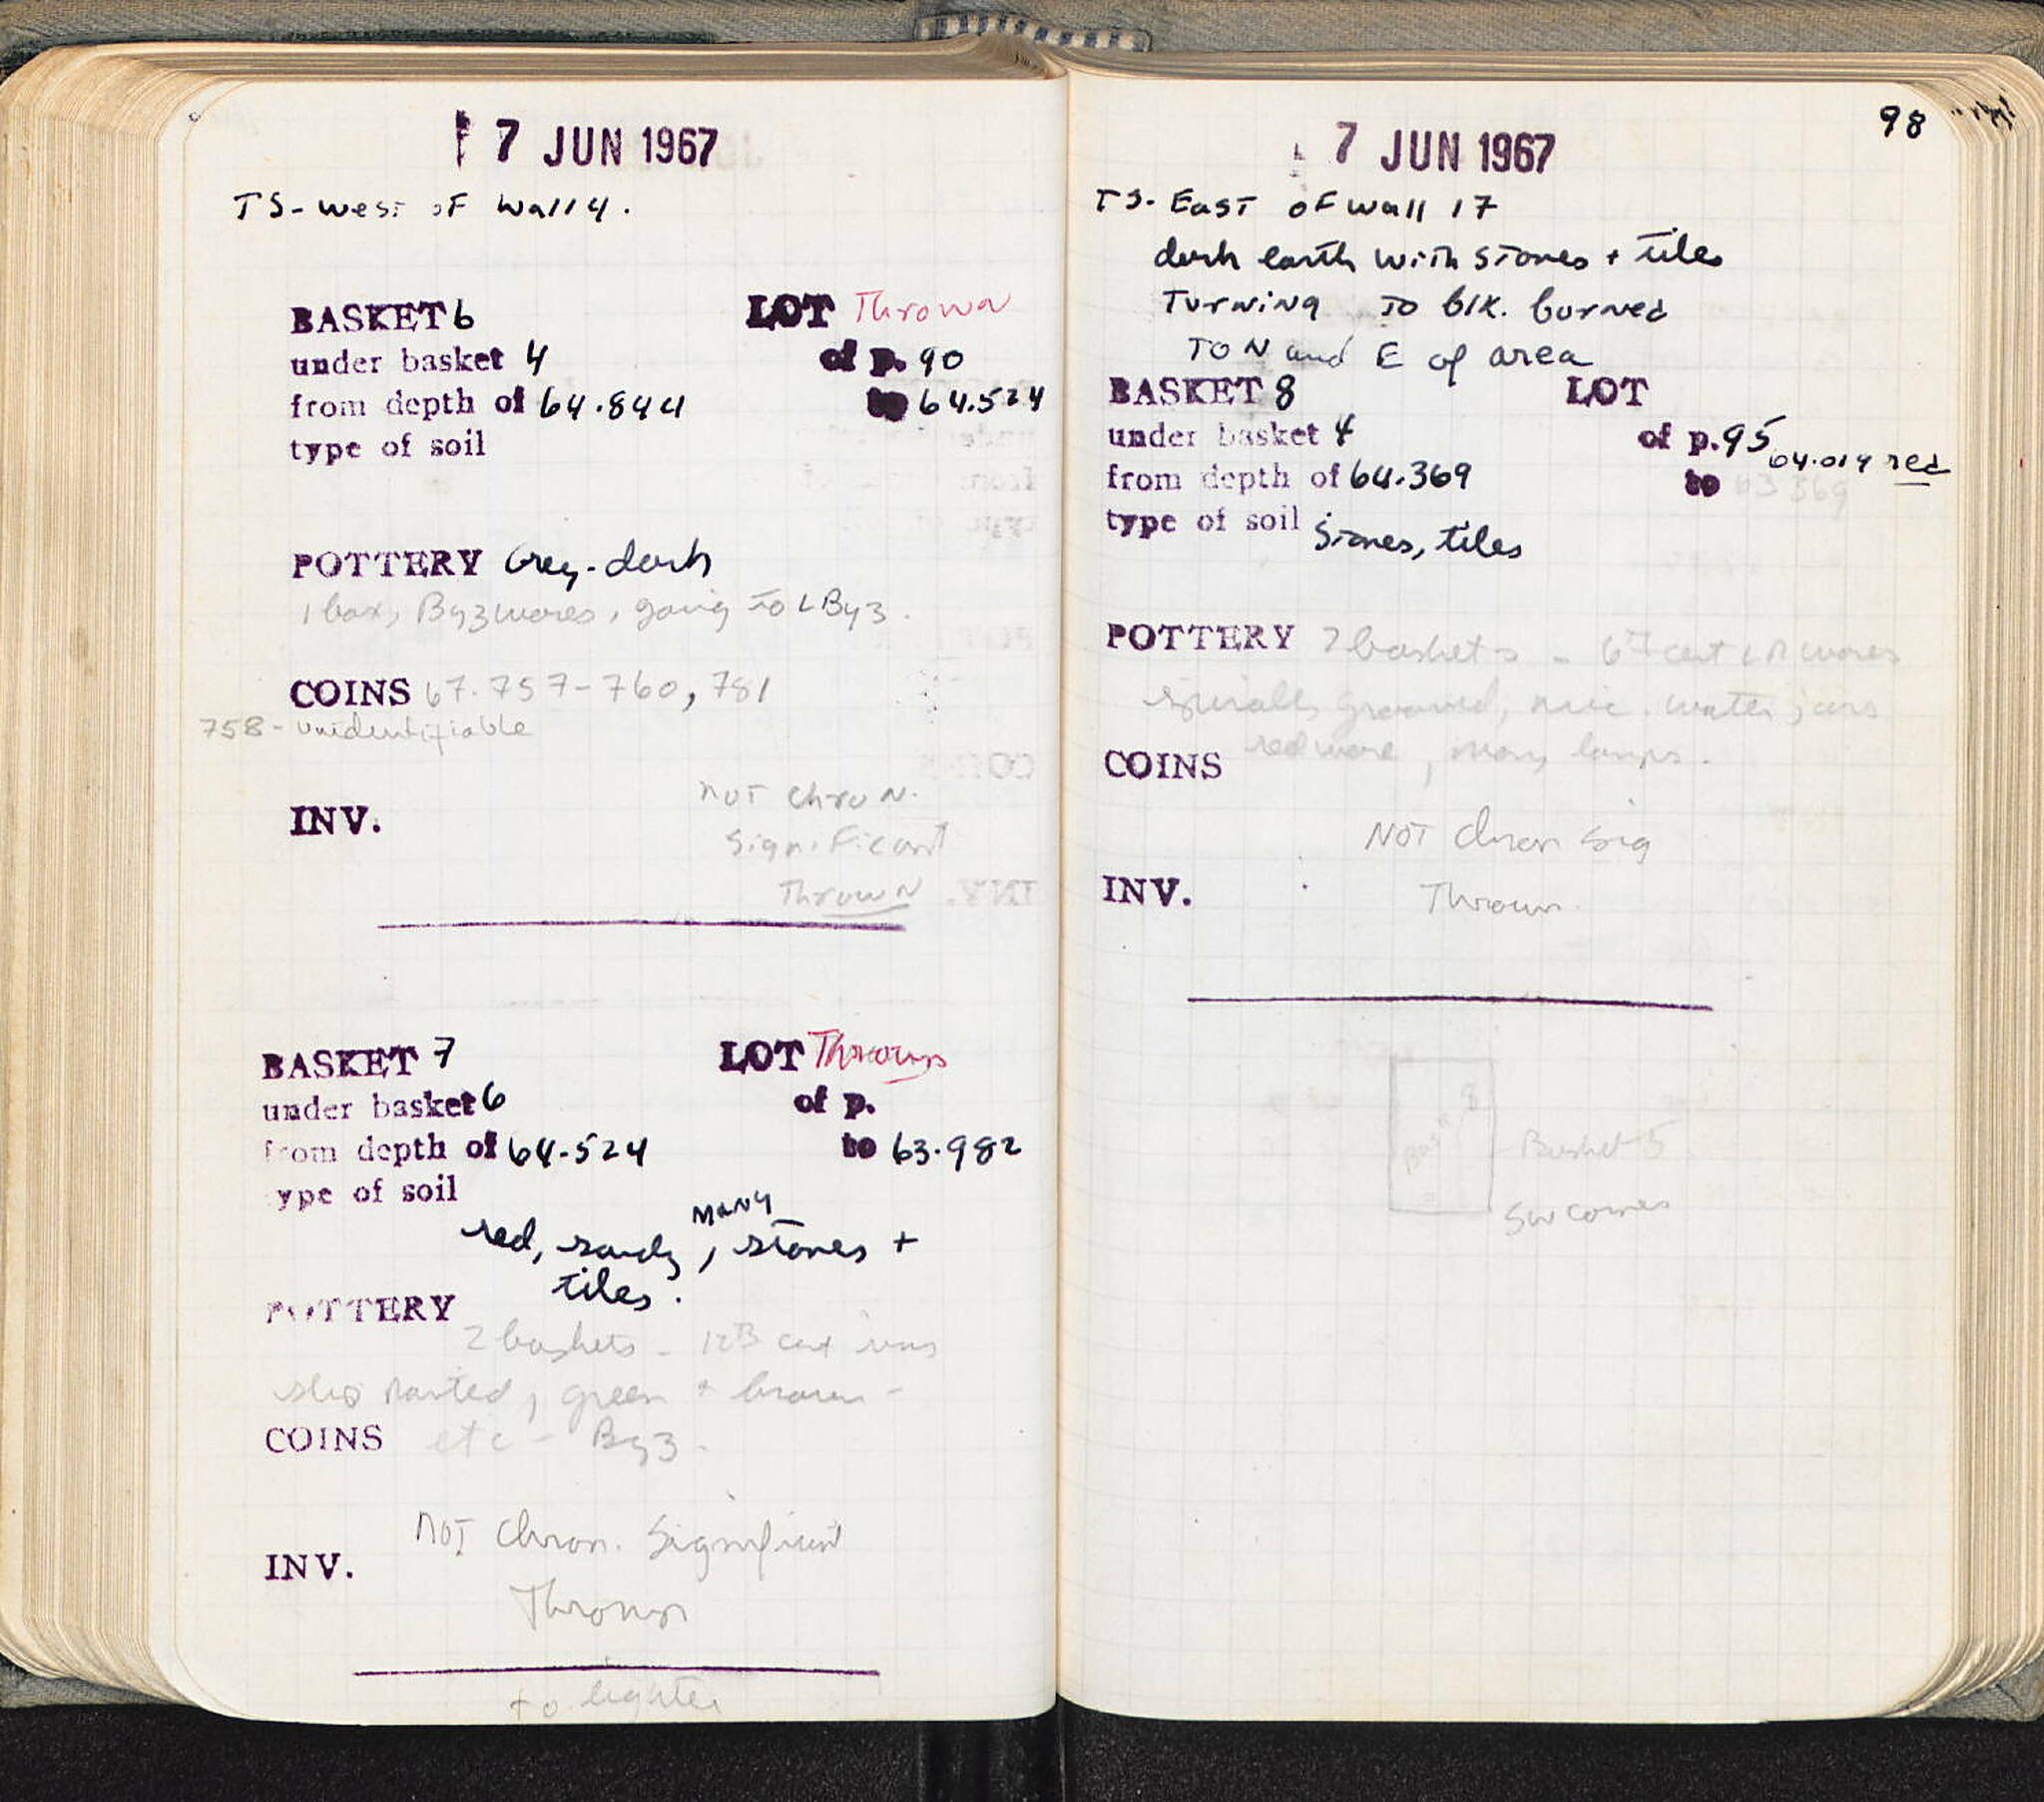 7 JUN 1967
TS - West of Wall 4.
BASKET 6 LOT Thrown
under basket 4 of p. 90
from depth of 64.844 to 64.524
type of soil
POTTERY Grey-dark
1 box, Byz wares, going to L Byz.
COINS 67.757-760, 781
758 - unidentifiable
not chron.
INV. significant
Thrown
BASKET 7 LOT Thrown
under basket 6 of p.
from depth of 64.524 to 63.982
type of soil
many
red, sandy, stones +
tiles.
POTTERY
2 baskets - 12th cent
slip painted, green + brown -
COINS etc - Byz.
Not chron. Significant
INV.
Thrown
to lighter
98
7 JUN 1967
TS. East of wall 17
dark earth with stones + tiles
Turning to blk. burned
TO N and E of area
BASKET 8 LOT
under basket 4 of p. 95
64.019 red
from depth of 64.369 to 63 369
type of soil Stones, tiles
POTTERY 2 baskets - 6th cent LR wares
spirally grooved, mic. water jars
red ware, many lamps.
COINS
NOT chron sig
INV. Thrown
Bask. 8
Basket 5
SW corner